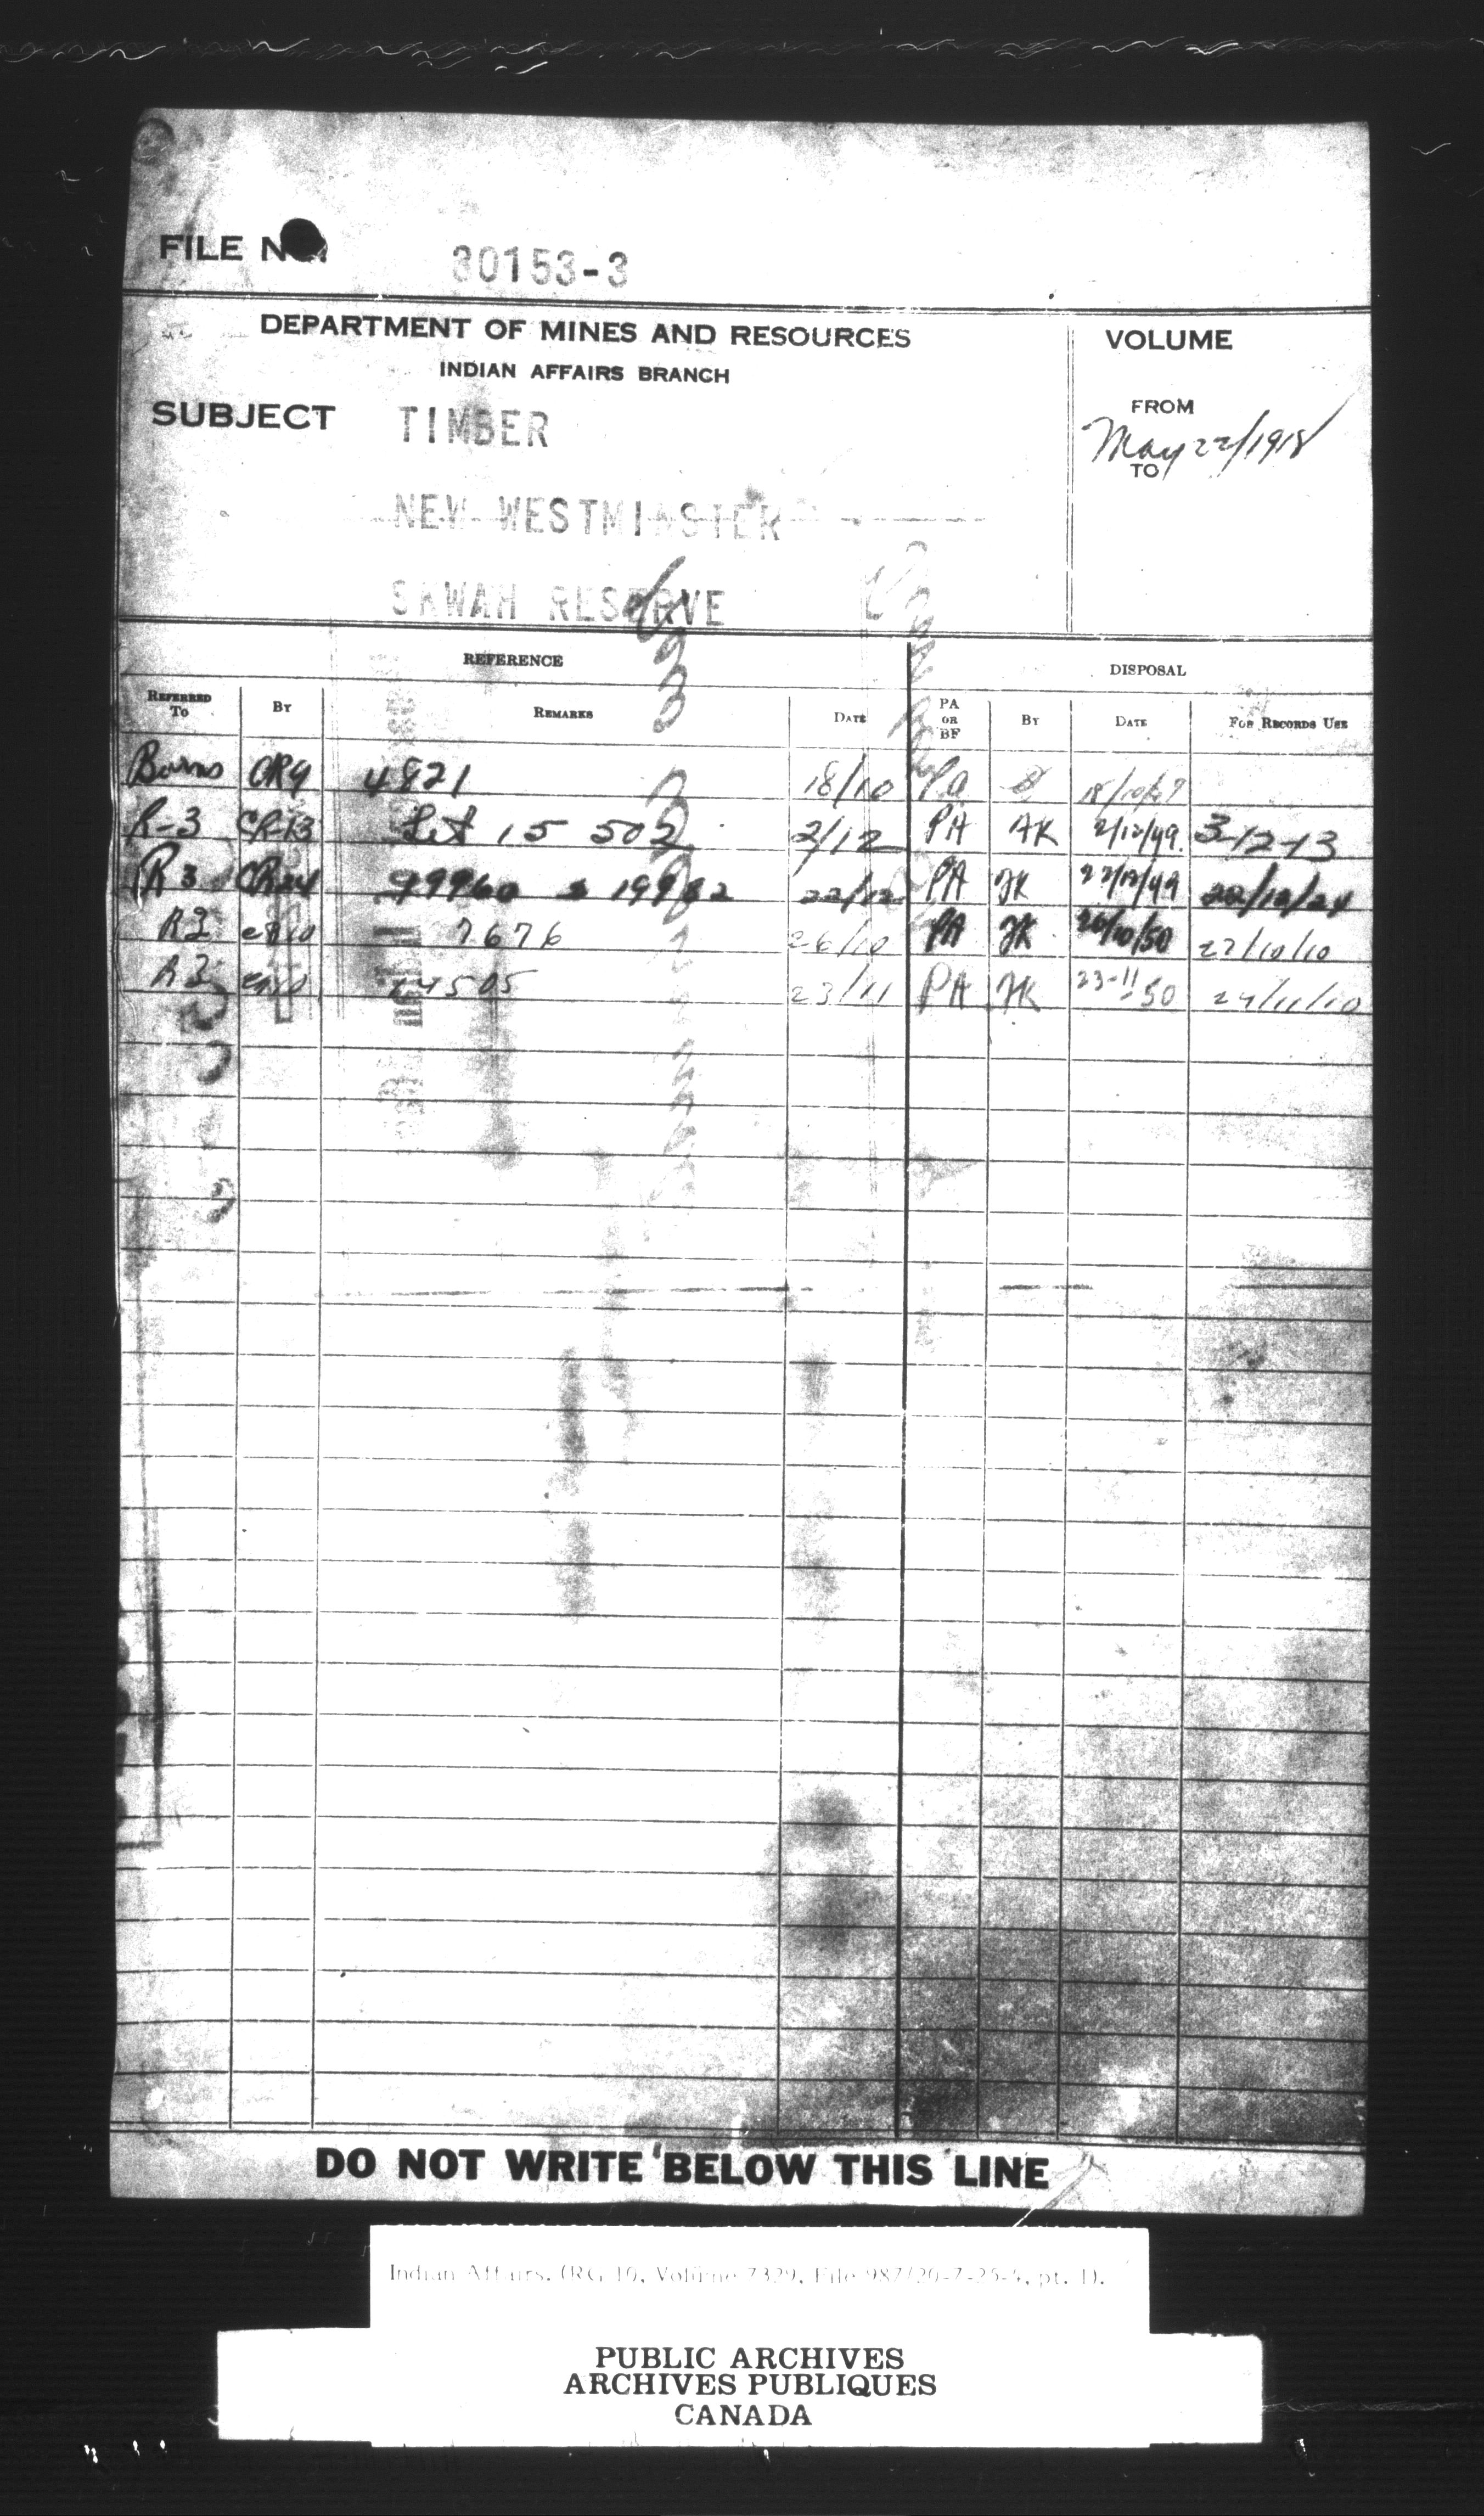 FILE No.
30153-3
DEPARTMENT OF MINES AND RESOURCES
INDIAN AFFAIRS BRANCH
VOLUME
SUBJECT TIMBER
FROM
May 22/1918
TO
NEW WESTMINSTER
SKWAH RESERVE
REFERENCE DISPOSAL
REFERRED TO BY REMARKS DATE PA OR BF BY DATE FOR RECORDS USE
4821 18/10 Pa
R-3 CR-13 Let 15 502 2/12 PA AK 2/12/49. 3-12-13
R3 CR24 22/12 PA JK 22/12/49 22/12/24
R2 7676 26/10 PA JK 26/10/50 27/10/10
R2 14505 23/11 PA JK 23-11-50 24/11/10
DO NOT WRITE BELOW THIS LINE
Indian Affairs. (RG 10, Volume 7329, File 987/20-7-25-4, pt. 1).
PUBLIC ARCHIVES
ARCHIVES PUBLIQUES
CANADA